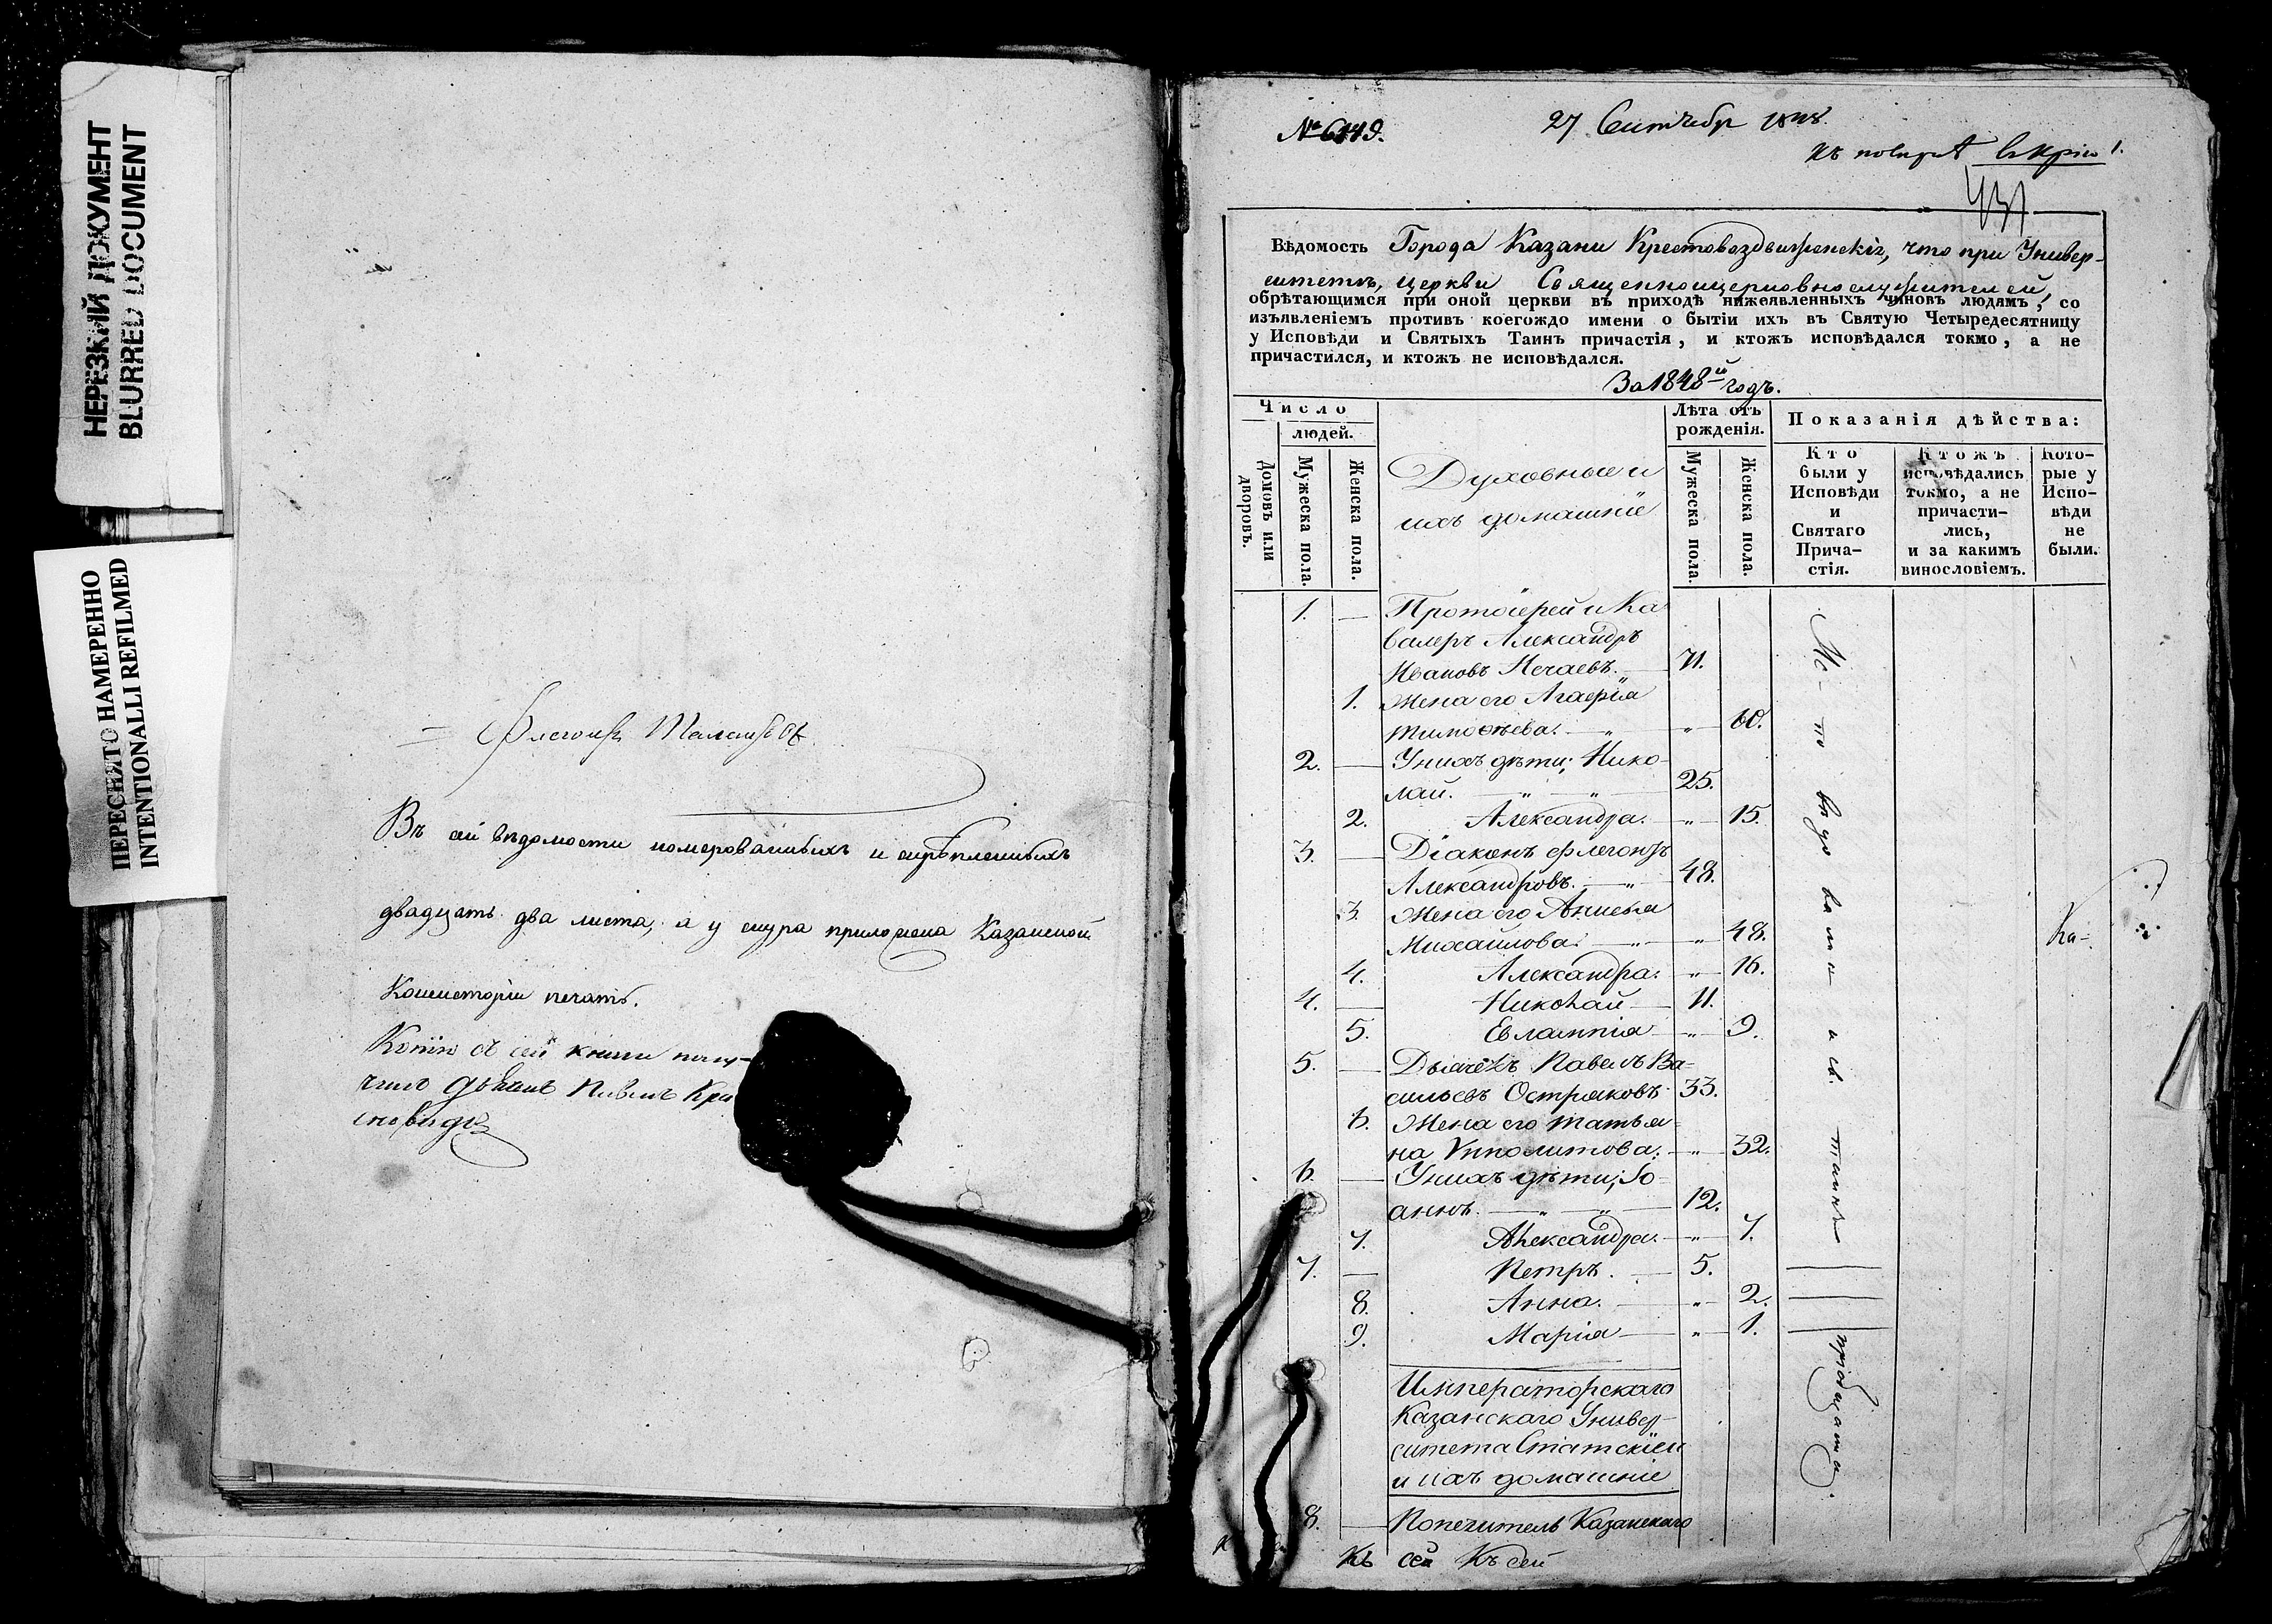 НЕРЕЗКИЙ ДОКУМЕНТ
BLURRED DOCUMENT
ПЕРЕСНЯТО НАМЕРЕННО
INTENTIONALLI REFILMED
Въ сей вѣдомости номерованныхъ и скрѣпленныхъ
двадцать два листа, а у снура приложена Казанской
Консисторіи печать.
Копію съ сей книги полу-
чилъ
№ 6149.
27 Сентябр 1848.
1.
Вѣдомость Города Казани Крестовоздвиженскія, что при Универ-
ситетѣ, церкви Священноицерковнослужителей,
обрѣтающимся при оной церкви въ приходѣ нижеявленныхъ чиновъ людямъ, со
изъявленіемъ противъ коегождо имени о бытіи ихъ въ Святую Четыредесятницу
у Исповѣди и Святыхъ Таинъ причастія, и ктожъ исповѣдался токмо, а не
причастился, и ктожъ не исповѣдался.
За 1848й годъ.
Число
людей.
Домовъ или дворовъ.
Мужеска пола.
Женска пола.
Духовные и
ихъ домашніе
Лѣта отъ
рожденія.
Мужеска пола.
Женска пола.
Показанія дѣйства:
Кто
были у
Исповѣди
и
Святаго
Прича-
стія.
Ктожъ
исповѣдались
токмо, а не
причасти-
лись,
и за какимъ
винословіемъ.
Кото-
рые у
Испо-
вѣди
не
были.
1. — Протоіерей и Ка
валеръ Александръ
Ивановъ Нечаевъ. — 71.
1. Жена его Агафія
Тимофѣева. — „ — „ — 60.
2. — У нихъ дѣти; Нико-
лай. — „ — „ — 25.
2. Александра. — „ — 15.
3. — Діаконъ Флегонтъ
Александровъ. — „ — 48.
3. Жена его Анисья
Михайлова. — „ — „ — 48.
4. Александра. „ — 16.
4. — Николай — 11.
5. Евлампія — „ — 9.
5. — Дьячекъ Павелъ Ва-
сильевъ Остряковъ 33.
6. Жена его Татья-
на Ипполитова. — „ — 32.
6. — У нихъ дѣти; Іо-
аннъ. — „ — „ — 12.
7. Александра. — „ — 7.
7. — Петръ. — 5.
8. Анна. — „ — 2.
9. Марія — „ — 1.
Ис-по вѣдо вали- и св. таинъ
пріобщены.
Императорскаго
Казанскаго Универ-
ситета Статскіе
и ихъ домашніе
8. — Попечитель Казанскаго
Къ сей Къ сей